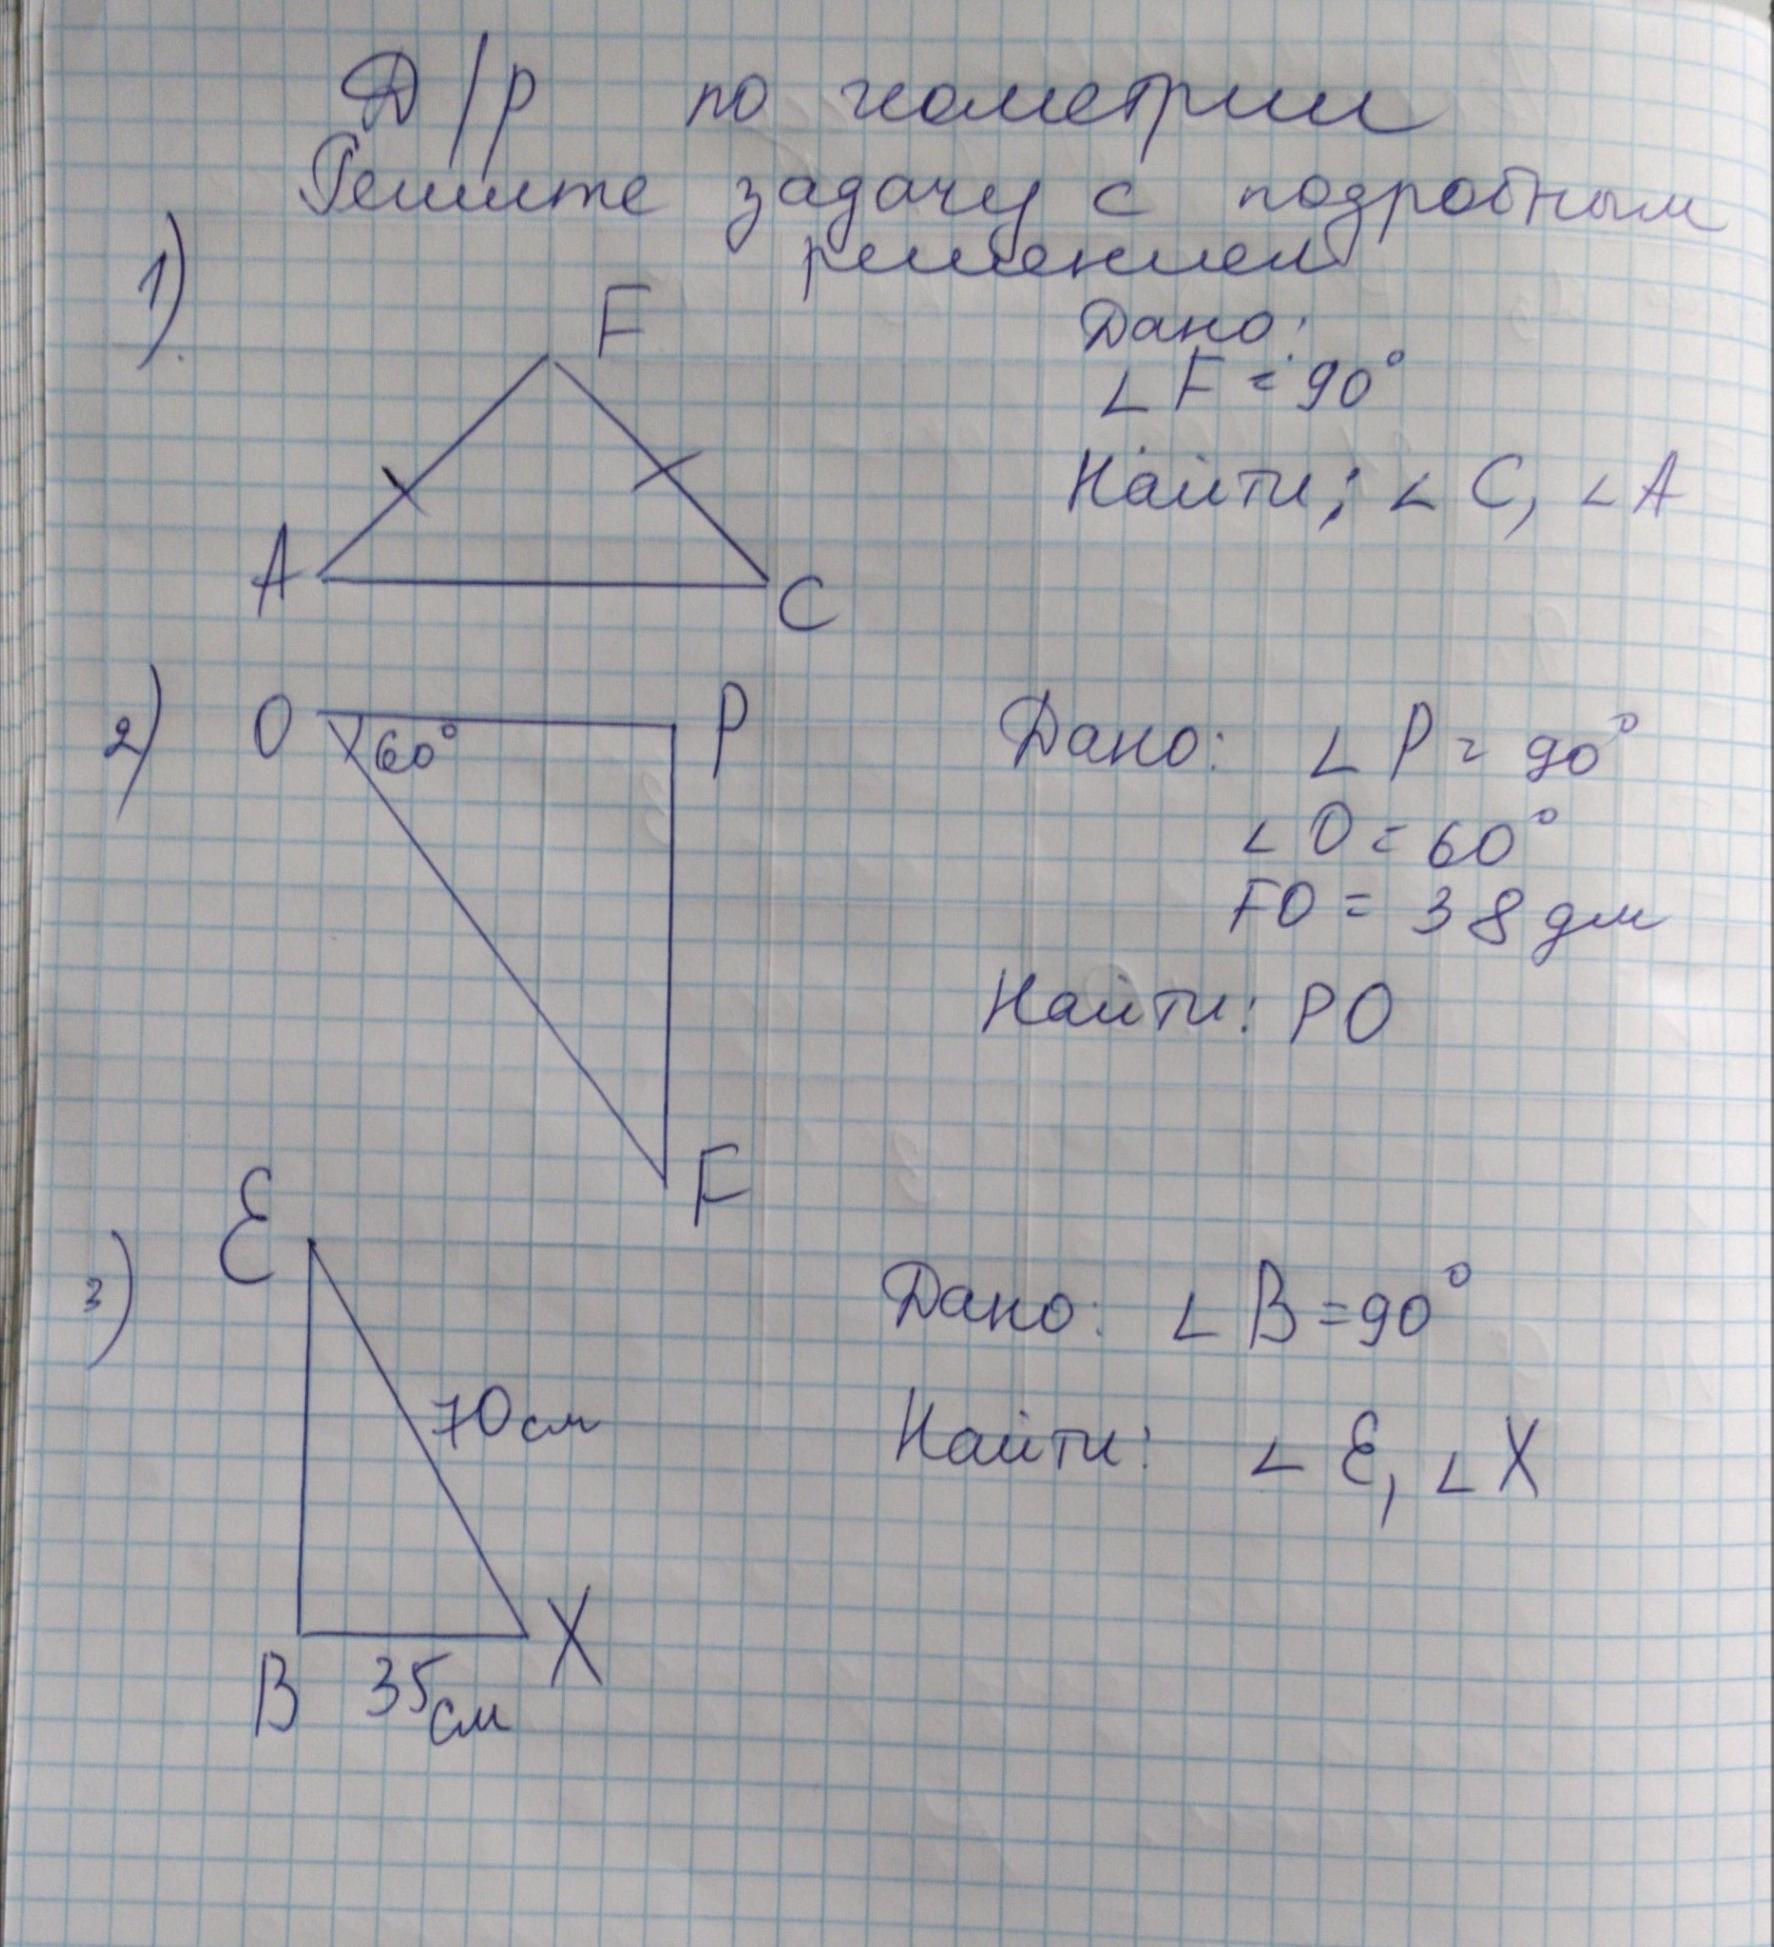 Д/р по геометрии
Решите задачу с подробным
решением
1)
F
A
C
Дано:
∠F = 90°
Найти: ∠C, ∠A
2)
O
60°
P
F
Дано: ∠P = 90°
∠O = 60°
FO = 38 дм
Найти: PO
3)
E
70 см
B
35 см
X
Дано: ∠B = 90°
Найти: ∠E, ∠X